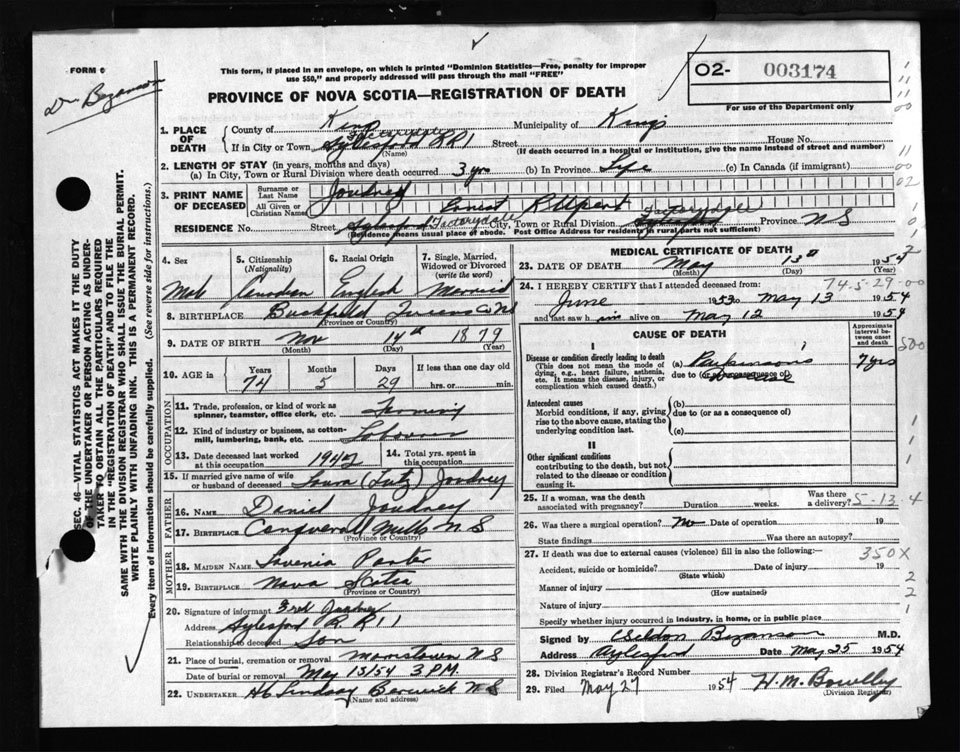 FORM 6
This form, if placed in an envelope, on which is printed "Dominion Statistics—Free, penalty for improper
use $50," and properly addressed will pass through the mail "FREE"
02- 003174
For use of the Department only
PROVINCE OF NOVA SCOTIA—REGISTRATION OF DEATH
1. PLACE OF DEATH County of Kings Municipality of Kings
If in City or Town Aylesford RR1 Street House No.
(Name) (If death occurred in a hospital or institution, give the name instead of street and number)
2. LENGTH OF STAY (in years, months and days)
(a) In City, Town or Rural Division where death occurred 3 yrs (b) In Province Life (c) In Canada (if immigrant)
3. PRINT NAME OF DECEASED Surname or Last Name Joudrey
All Given or Christian Names Ernest
RESIDENCE No. Street Aylesford City, Town or Rural Division Province N S
(Residence means usual place of abode. Post Office Address for residents in rural parts not sufficient)
4. Sex 5. Citizenship (Nationality) 6. Racial Origin 7. Single, Married, Widowed or Divorced (write the word)
Canadian English Married
8. BIRTHPLACE Buckfield Queens Co NS
(Province or Country)
9. DATE OF BIRTH Nov 14th 1879
(Month) (Day) (Year)
10. AGE in Years Months Days If less than one day old
74 5 29 hrs. or min.
OCCUPATION
11. Trade, profession, or kind of work as spinner, teamster, office clerk, etc. Farming
12. Kind of industry or business, as cotton-mill, lumbering, bank, etc. Labourer
13. Date deceased last worked at this occupation 1942 14. Total yrs. spent in this occupation
15. If married give name of wife or husband of deceased Laura (Lutz) Joudrey
FATHER
16. Name Daniel Joudrey
17. Birthplace Conquerall Mills N S
(Province or Country)
MOTHER
18. Maiden Name Lavenia
19. Birthplace Nova Scotia
(Province or Country)
20. Signature of informant Joudrey
Address Aylesford R R 1
Relationship to deceased Son
21. Place of burial, cremation or removal Morristown N S
Date of burial or removal May 15/54 3 P.M.
22. UNDERTAKER Lindsay Berwick N S
(Name and address)
MEDICAL CERTIFICATE OF DEATH
23. DATE OF DEATH May 13th 1954
(Month) (Day) (Year)
24. I HEREBY CERTIFY that I attended deceased from: 74-5-29-00
June 1953 to May 13 1954
and last saw him alive on May 12 1954
CAUSE OF DEATH Approximate interval between onset and death
I
Disease or condition directly leading to death (a) Parkinson's 7 yrs
(This does not mean the mode of dying, e.g., heart failure, asthenia, etc. It means the disease, injury, or complication which caused death.) due to (or as a consequence of)
Antecedent causes (b)
Morbid conditions, if any, giving rise to the above cause, stating the underlying condition last. due to (or as a consequence of)
(c)
II
Other significant conditions
contributing to the death, but not related to the disease or condition causing it.
25. If a woman, was the death associated with pregnancy? Duration weeks. Was there a delivery? 5-13-4
26. Was there a surgical operation? No Date of operation 19
State findings Was there an autopsy?
27. If death was due to external causes (violence) fill in also the following:— 350X
Accident, suicide or homicide? Date of injury 19
(State which)
Manner of injury
(How sustained)
Nature of injury
Specify whether injury occurred in industry, in home, or in public place
Signed by Bezanson M.D.
Address Aylesford Date May 25 1954
28. Division Registrar's Record Number
29. Filed May 27 1954 H. M.
(Division Registrar)
SEC. 46—VITAL STATISTICS ACT MAKES IT THE DUTY
OF THE UNDERTAKER OR PERSON ACTING AS UNDER-
TAKER TO OBTAIN ALL THE PARTICULARS REQUIRED
IN THE "REGISTRATION OF DEATH" AND TO FILE THE
SAME WITH THE DIVISION REGISTRAR WHO SHALL ISSUE THE BURIAL PERMIT.
WRITE PLAINLY WITH UNFADING INK. THIS IS A PERMANENT RECORD.
Every item of information should be carefully supplied. (See reverse side for instructions.)